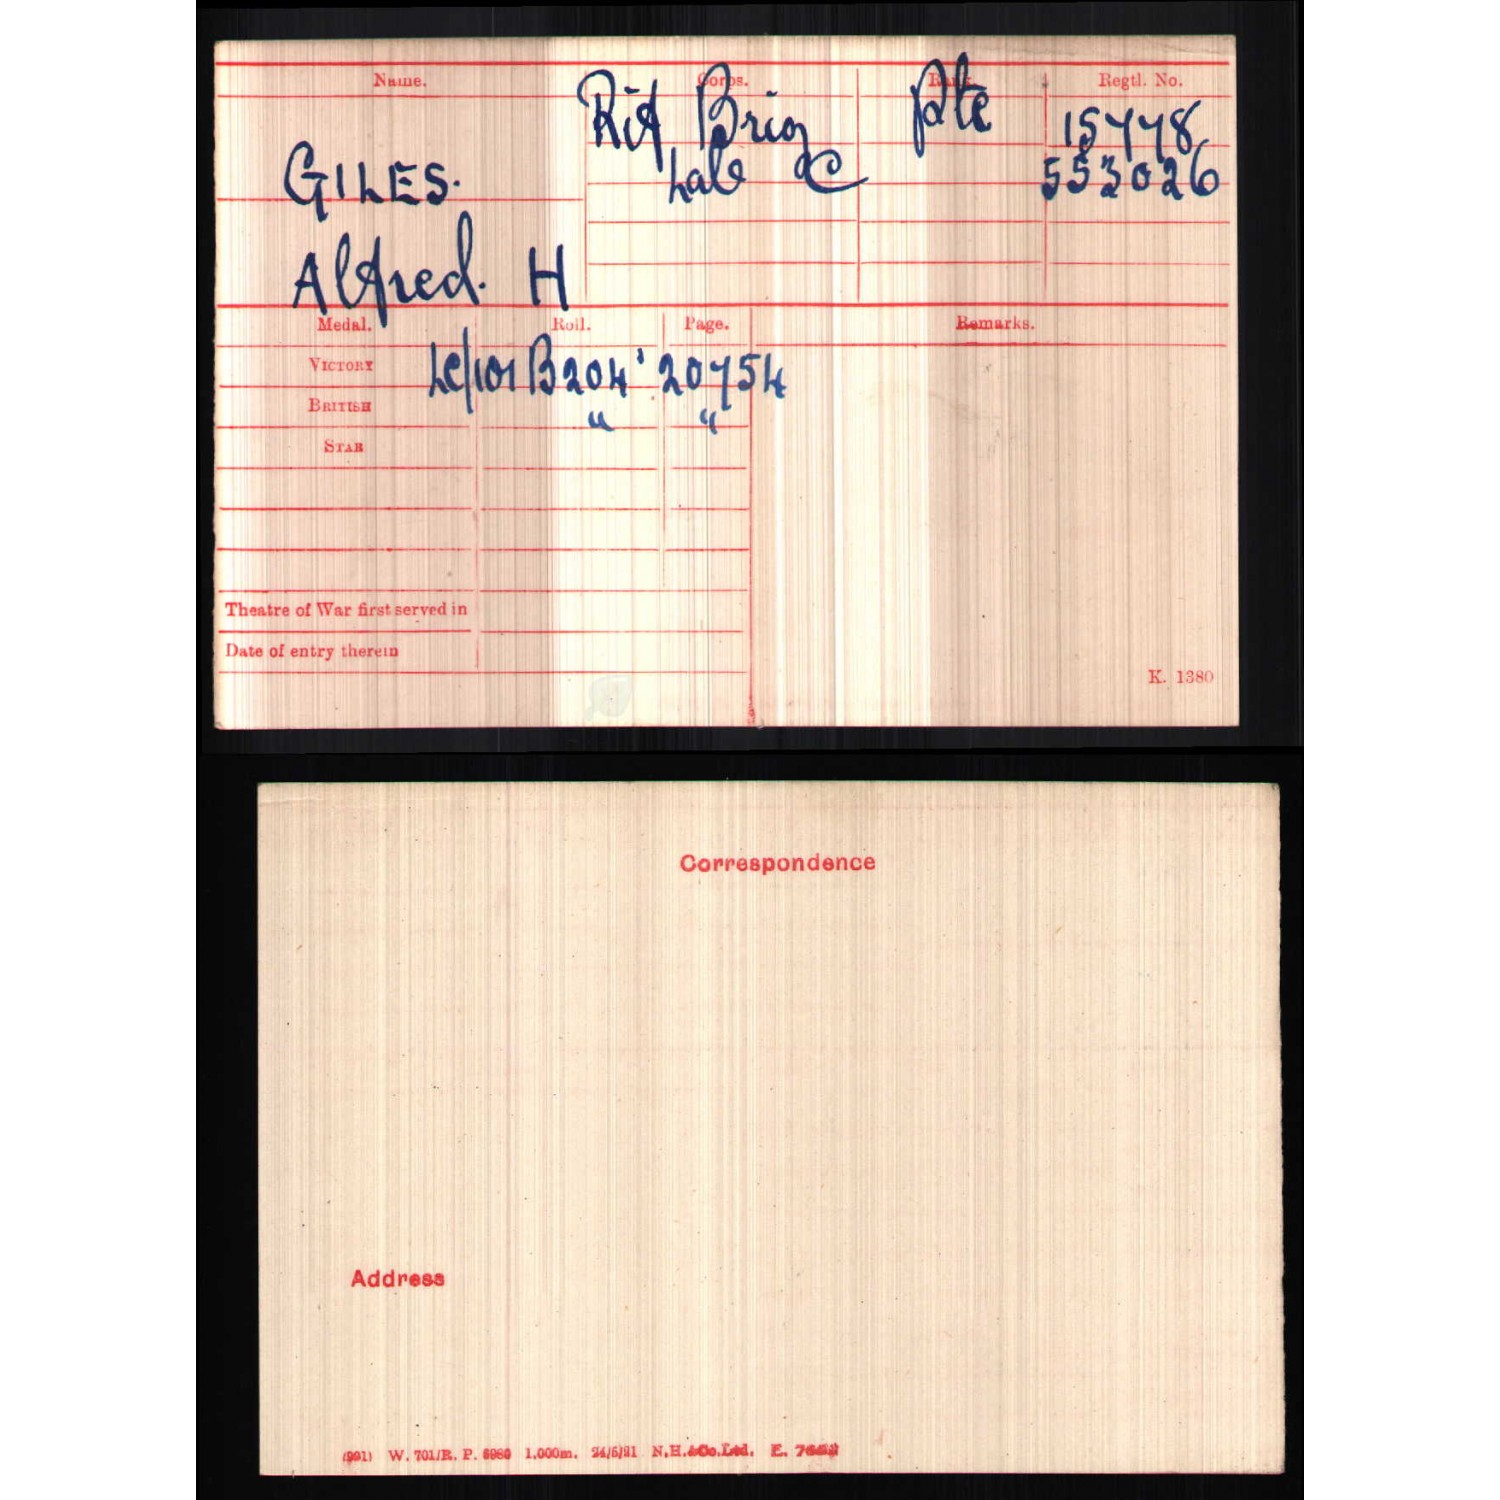 Name. Corps. Rank. Regtl. No.
Rif Brig Pte 15778
GILES. Lab C 553026
Alfred. H
Medal. Roll. Page. Remarks.
VICTORY LC/101 B204 20754
BRITISH " "
STAR
Theatre of War first served in
Date of entry therein
K. 1380
Correspondence
Address
(991) W. 701/R. P. 6980 1,000m. 24/5/21 N.H.&Co.Ltd.